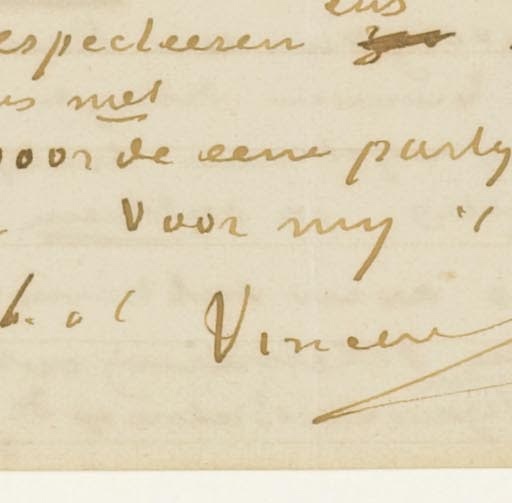 ens
especteeren
us met
voor de eene party
Voor my
b. à t Vincent